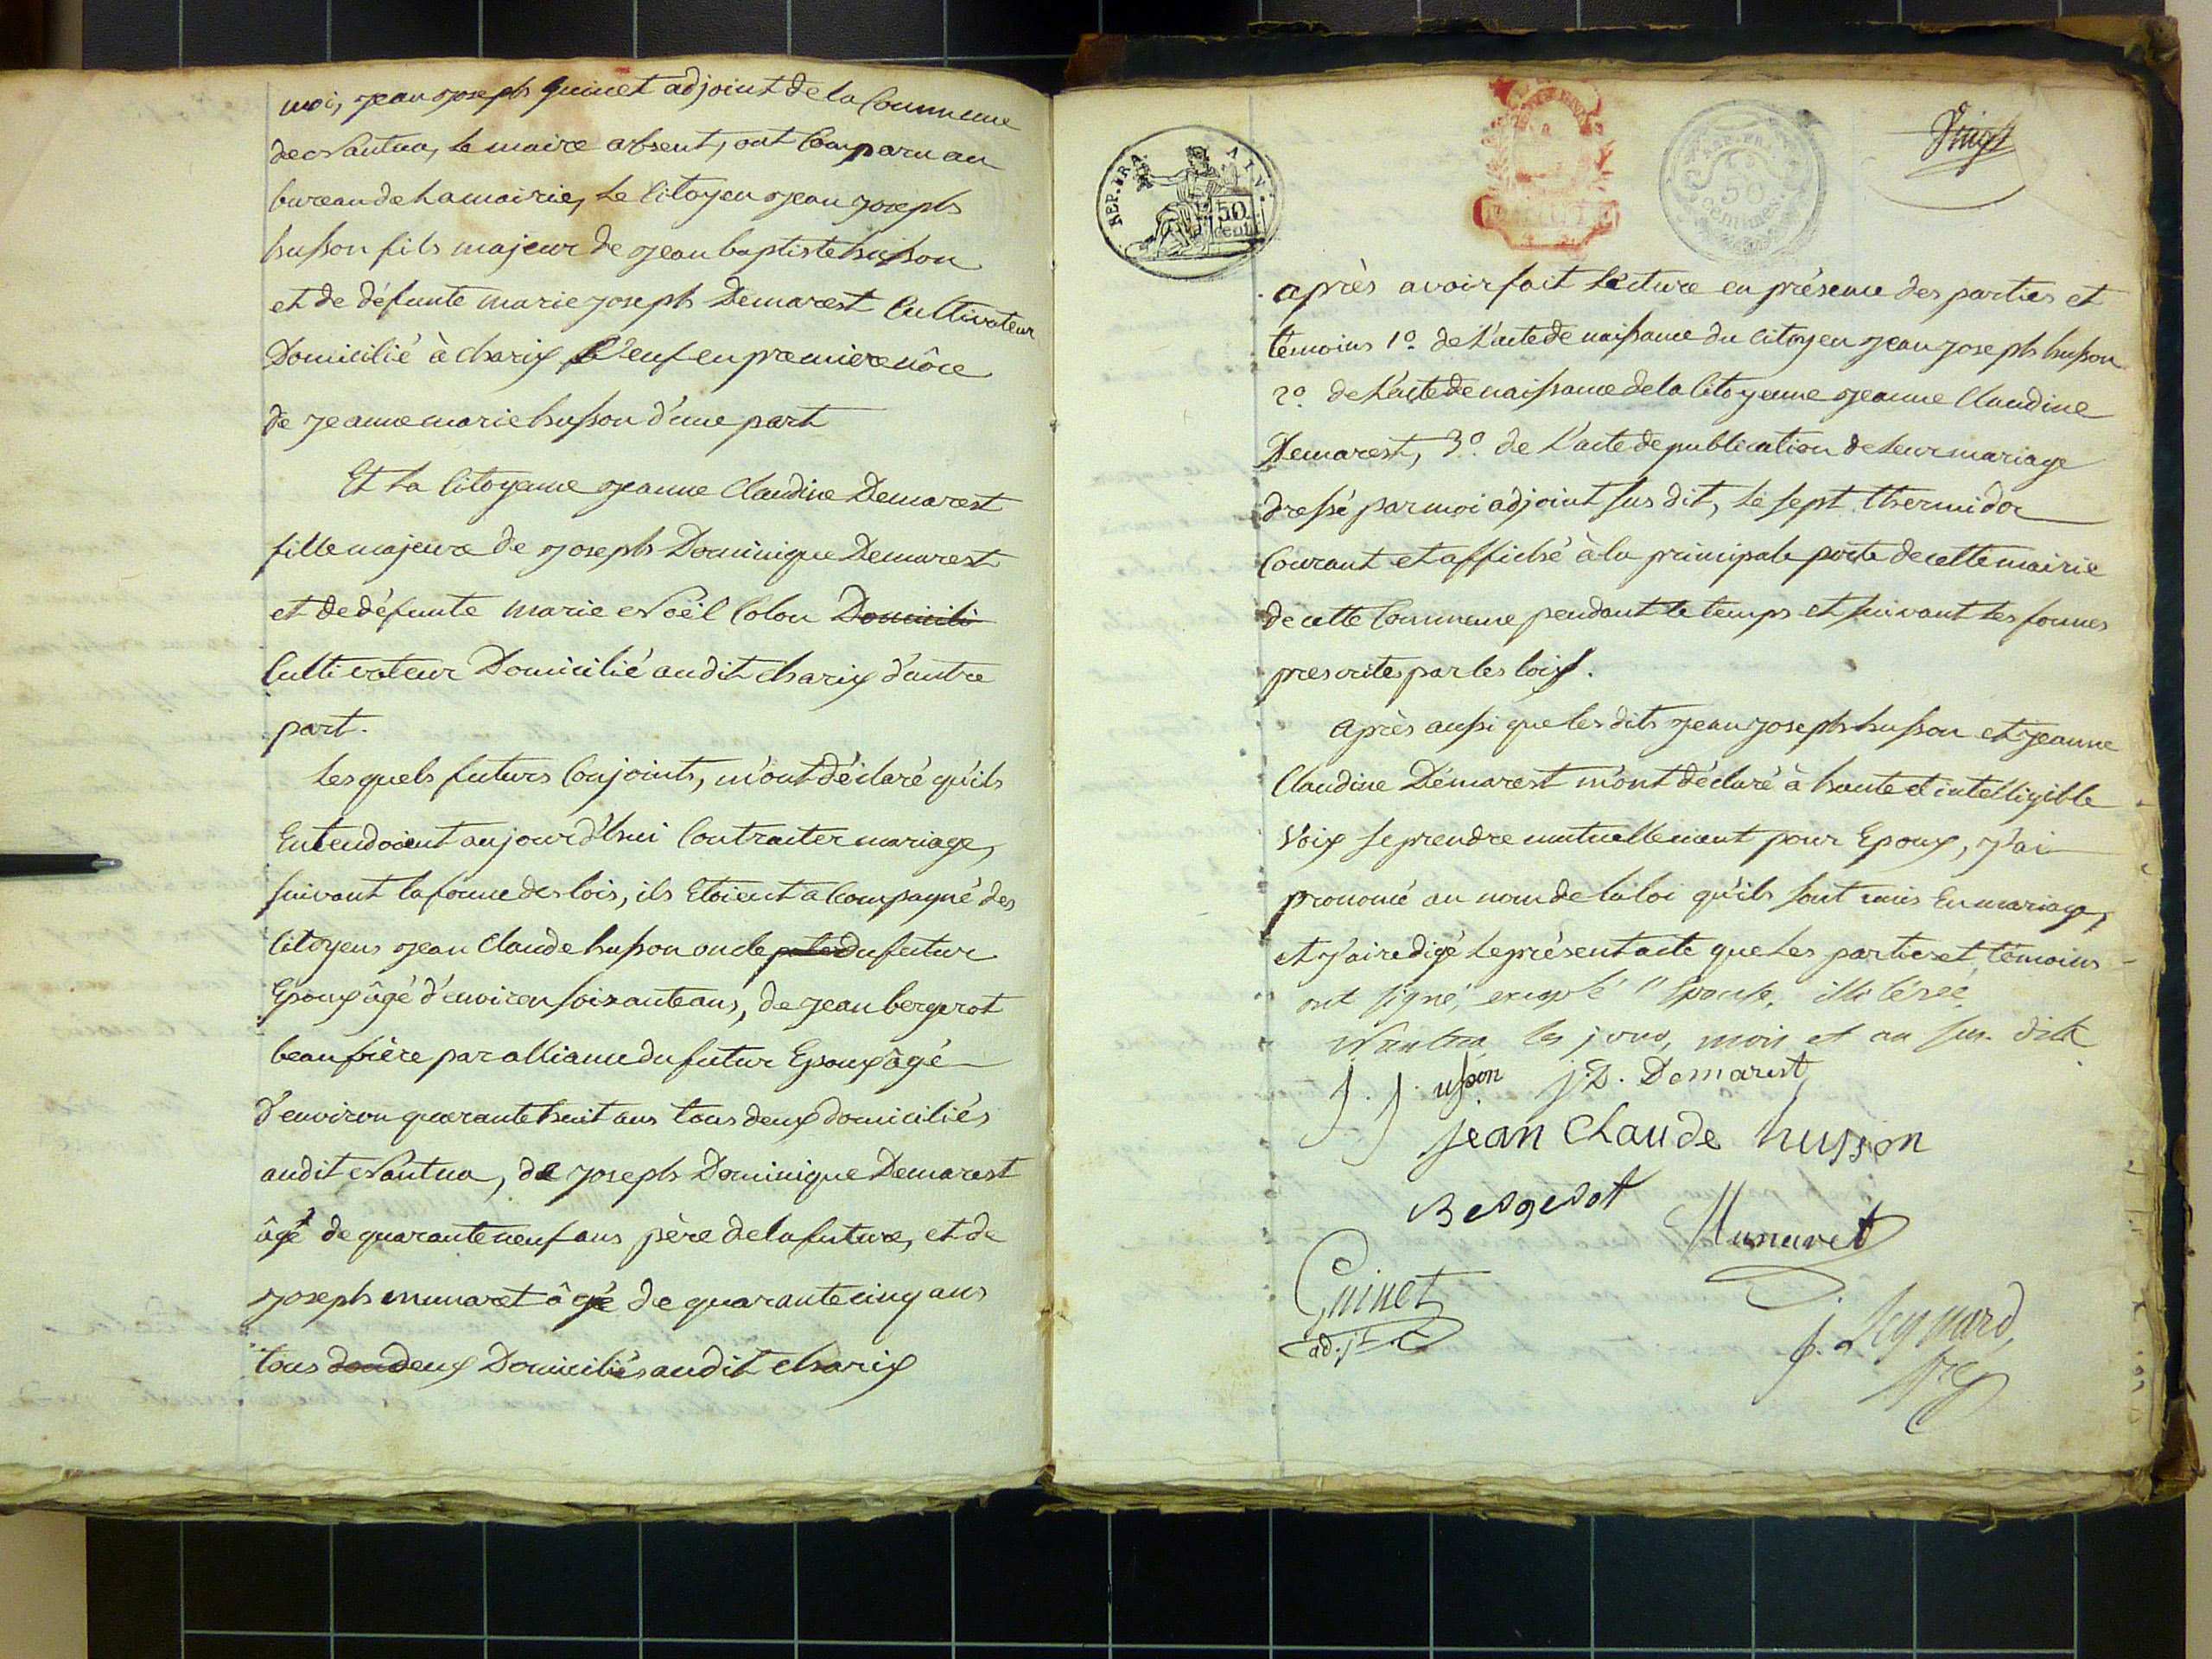 moi, Jean Joseph Guinet adjoint de la Commune
de Nantua, le maire absent, ont Comparu au
bureau de la mairie, le Citoyen Jean Joseph
husson fils majeur de Jean baptiste husson
et de défunte marie joseph Demarest Cultivateur
Domicilié à charix Veuf en premiere nôce
de jeanne marie husson d'une part
Et la Citoyenne Jeanne Claudine Demarest
fille majeure de Joseph Dominique Demarest
et de défunte Marie Noël Colon Domicili
Cultivateur Domicilié audit charix d'autre
part.
Lesquels futurs Conjoints, m'ont déclaré qu'ils
Entendoient aujourd'hui Contracter mariage,
suivant la forme des lois, ils Etoient acompagné des
Citoyens Jean Claude husson oncle pater du futur
Epoux âgé d'environ soixante ans, de jean bergerot
beau frère par alliance du futur Epoux âgé
d'environ quarante huit ans tous deux domiciliés
audit Nantua, de Joseph Dominique Demarest
âgé de quarante neuf ans père de la future, et de
Joseph munaret âgé de quarante cinq ans
tous deux Domiciliés audit charix
REP. FRA.
50
cent.
REP. FRA.
50
centimes
après avoir fait Lecture en présence des parties et
témoins 1º. de L'acte de naissance du Citoyen jean joseph husson
2º. de L'acte de naissance de la Citoyenne Jeanne Claudine
Demarest, 3º. de L'acte de publication de leur mariage
dressé par moi adjoint sus dit, le sept thermidor
Courant et affiché à la principale porte de cette mairie
de cette Commune pendant le temps et suivant les formes
prescrites par les loix.
Après aussi que les dits jean joseph husson et jeanne
Claudine Démarest m'ont déclaré à haute et intelligible
Voix se prendre mutuellement pour Epoux, j'ai
prononcé au nom de la loi qu'ils sont unis En mariage,
et j'ai redigé le présent acte que Les parties et témoins
ont signé, excepté l'Epouse, illitérée
Nantua les jour, mois et an sus dits
J. J. usson J. D. Demarest
jean Claude husson
Bergerot
Munaret
Guinet
adjt